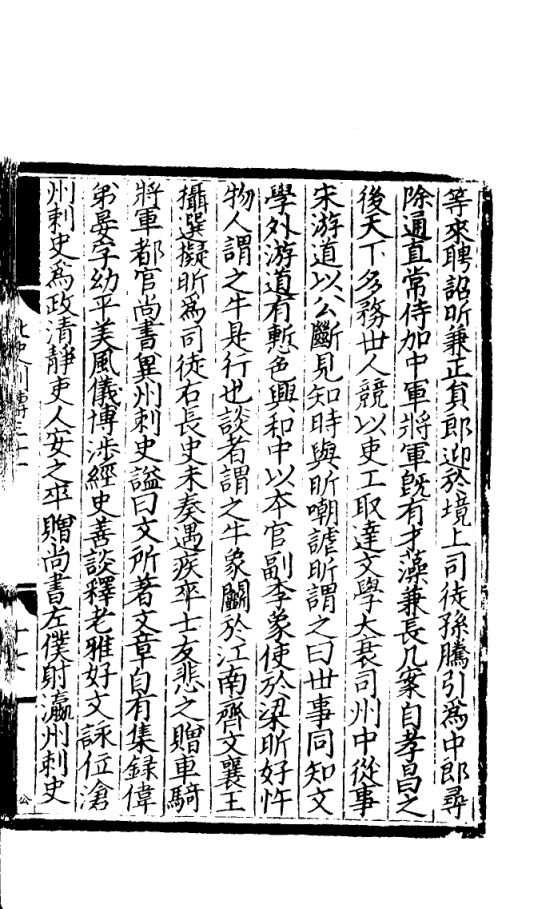 等來聘詔昕兼正員郎迎於境上司徒孫騰引爲中郎尋
除通直常侍加中軍將軍旣有才藻兼長几案自孝昌之
後天下多務世人競以吏工取達文學大衰司州中從事
宋游道以公斷見知時與昕嘲謔昕謂之曰世事同知文
學外游道有慙色興和中以本官副李象使於梁昕好忤
物人謂之牛是行也談者謂之牛象鬭於江南齊文襄王
攝選擬昕爲司徒右長史未奏遇疾卒士友悲之贈車騎
將軍都官尚書兾州刺史謚曰文所著文章自有集録偉
弟晏字幼平美風儀博涉經史善談釋老雅好文詠位滄
州刺史爲政清靜吏人安之卒贈尚書左僕射瀛州刺史